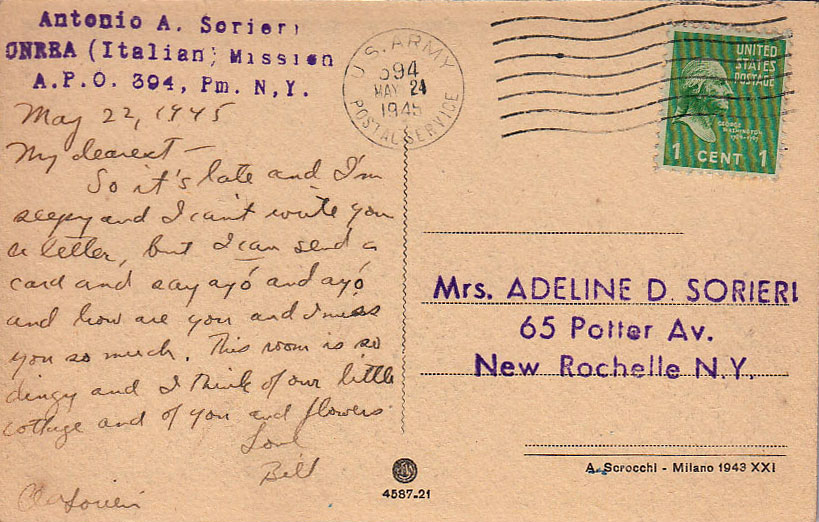 Antonio A. Sorieri
UNRRA (Italian) Mission
A.P.O. 394, Pm. N.Y.
U.S. ARMY
394
MAY 24
1945
POSTAL SERVICE
UNITED
STATES
POSTAGE
GEORGE
WASHINGTON
1789-1797
1 CENT 1
May 22, 1945
My dearest —
So it's late and I'm
seepy and I can't write you
a letter, but I can send a
card and say ayó and ayó
and how are you and I miss
you so much. This room is so
dingy and I think of our little
cottage and of you and flowers.
Love
Bill
Sorieri
Mrs. ADELINE D. SORIERI
65 Potter Av.
New Rochelle N.Y.
A. Scrocchi - Milano 1943 XXI
4587-21